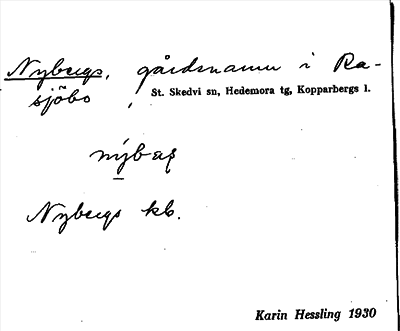 Nybergs, gårdsnamn i Ra-
sjöbo, St. Skedvi sn, Hedemora tg, Kopparbergs l.
Nybergs kb.
Karin Hessling 1930